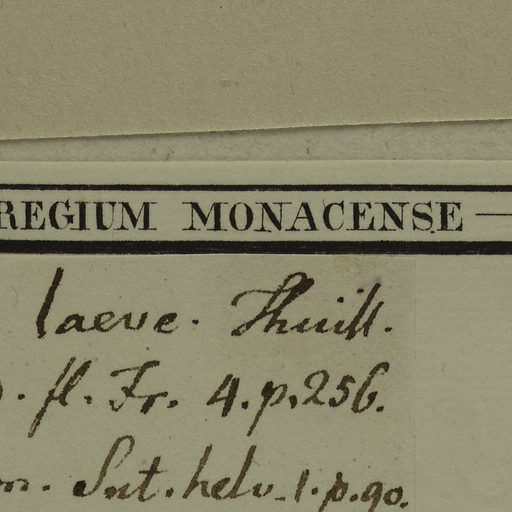 REGIUM MONACENSE
laeve. Thuill.
). fl. Fr. 4. p. 256.
helv. 1. p. 90.